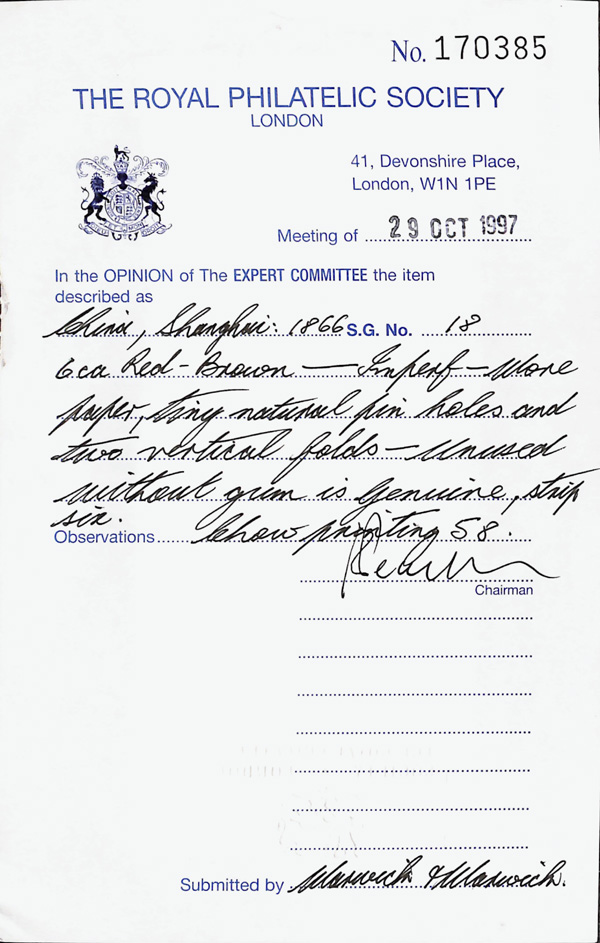 No. 170385
THE ROYAL PHILATELIC SOCIETY
LONDON
41, Devonshire Place,
London, W1N 1PE
Meeting of 29 OCT 1997
In the OPINION of The EXPERT COMMITTEE the item
described as
China, Shanghai: 1866 S.G. No. 18
6ca Red-Brown — Imperf - Wove
paper, tiny natural pin holes and
two vertical folds - Unused
without gum is genuine, strip
six.
Observations Chow printing 58.
Chairman
Submitted by Warwick & Warwick.